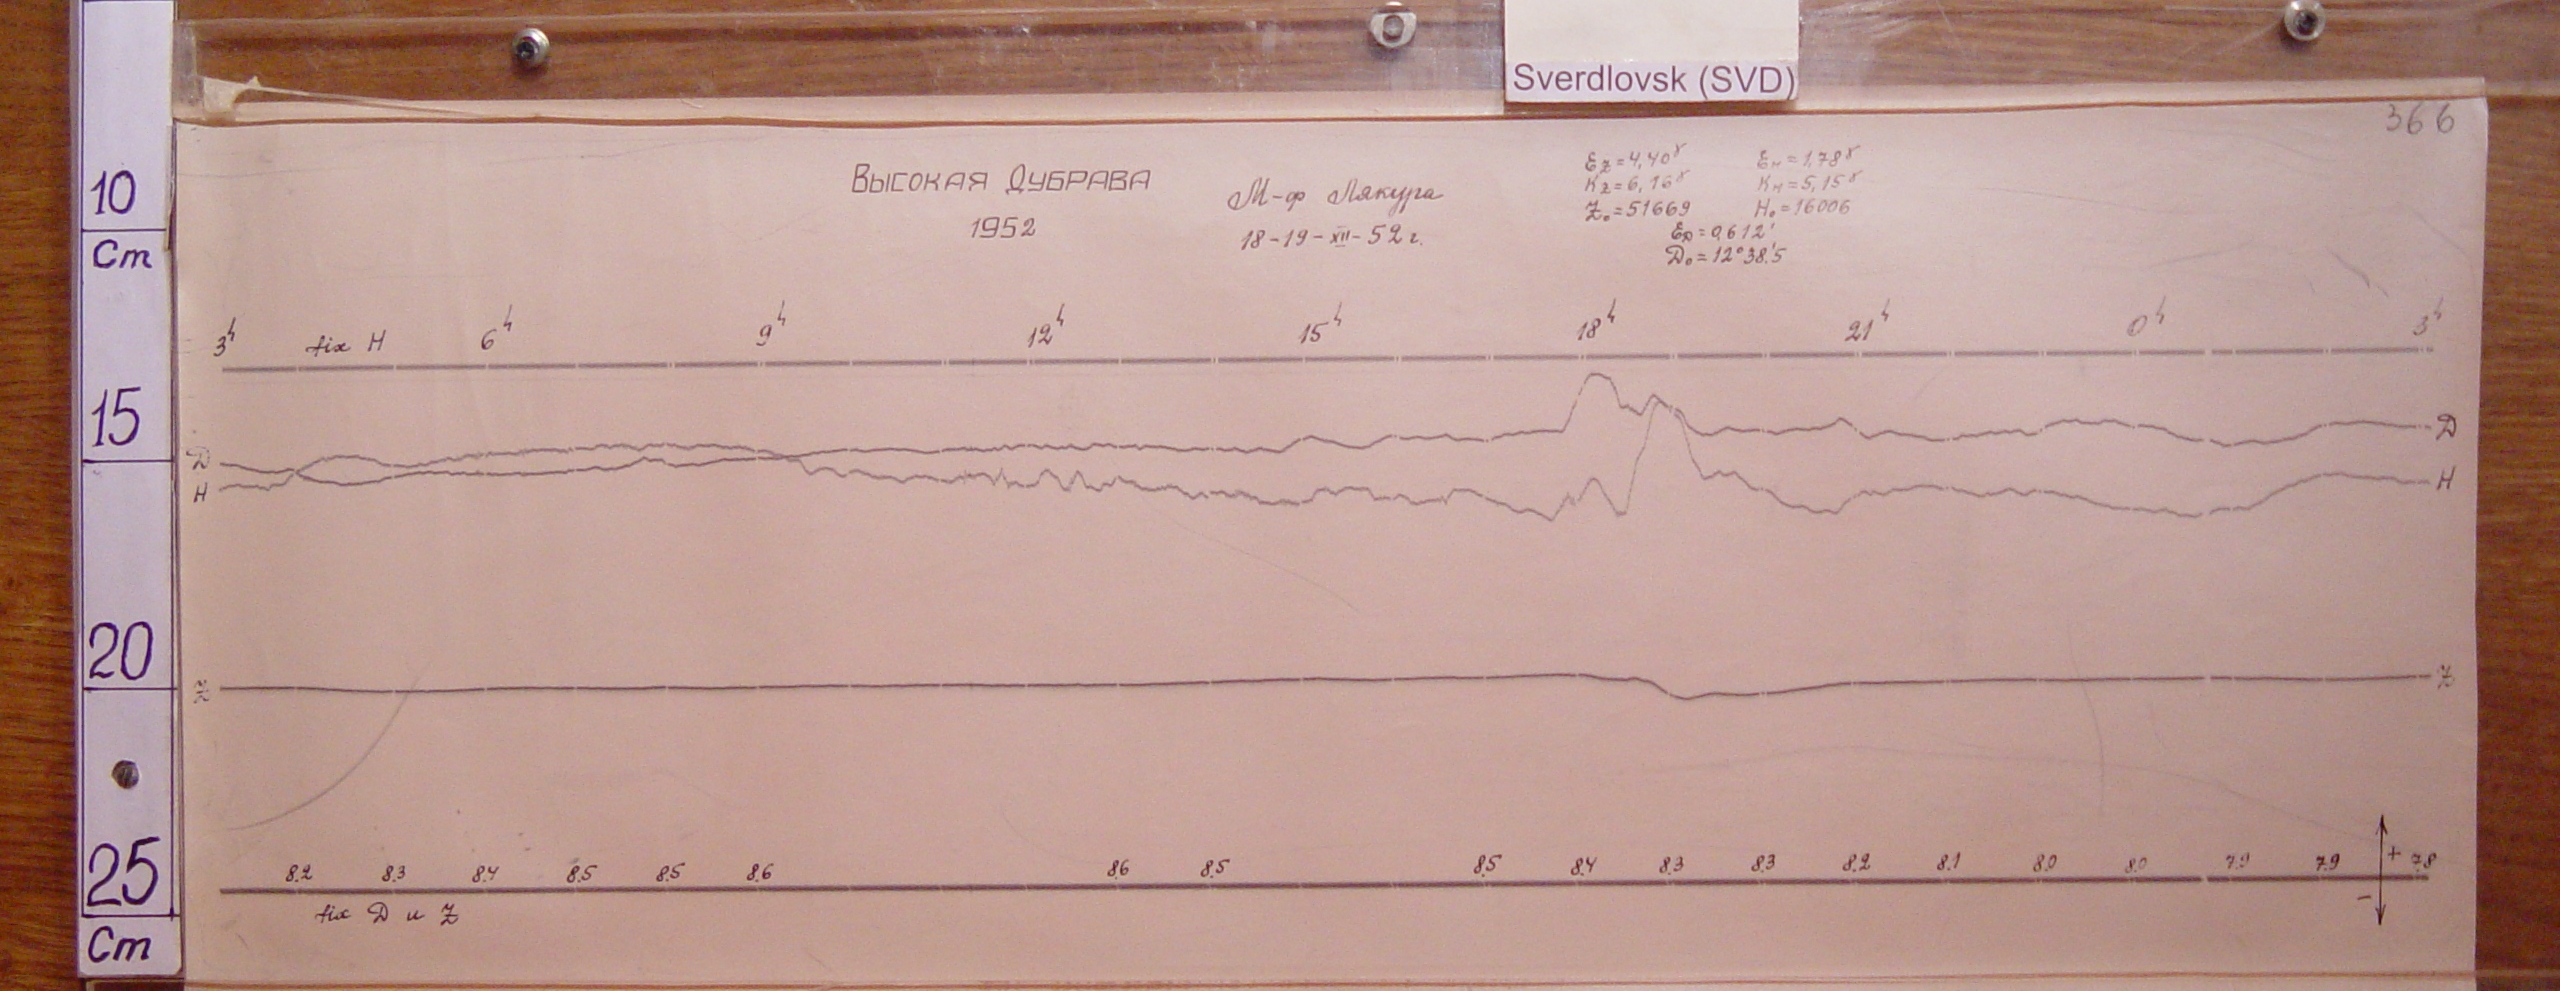 Sverdlovsk (SVD)
366
Высокая Дубрава
1952
М-ф Лякура
18-19-XII-52 г.
Ez=4,40γ Eн=1,78γ
Kz=6,16γ Kн=5,15γ
Z₀=51669 H₀=16006
ED=0,612'
D₀=12°38'.5
10
Cm
15
20
25
Cm
3h fix H 6h 9h 12h 15h 18h 21h 0h 3h
D D
H H
Z Z
8.2 8.3 8.4 8.5 8.5 8.6 8.6 8.5 8.5 8.4 8.3 8.3 8.2 8.1 8.0 8.0 7.9 7.9 + 7.8
−
fix D и Z